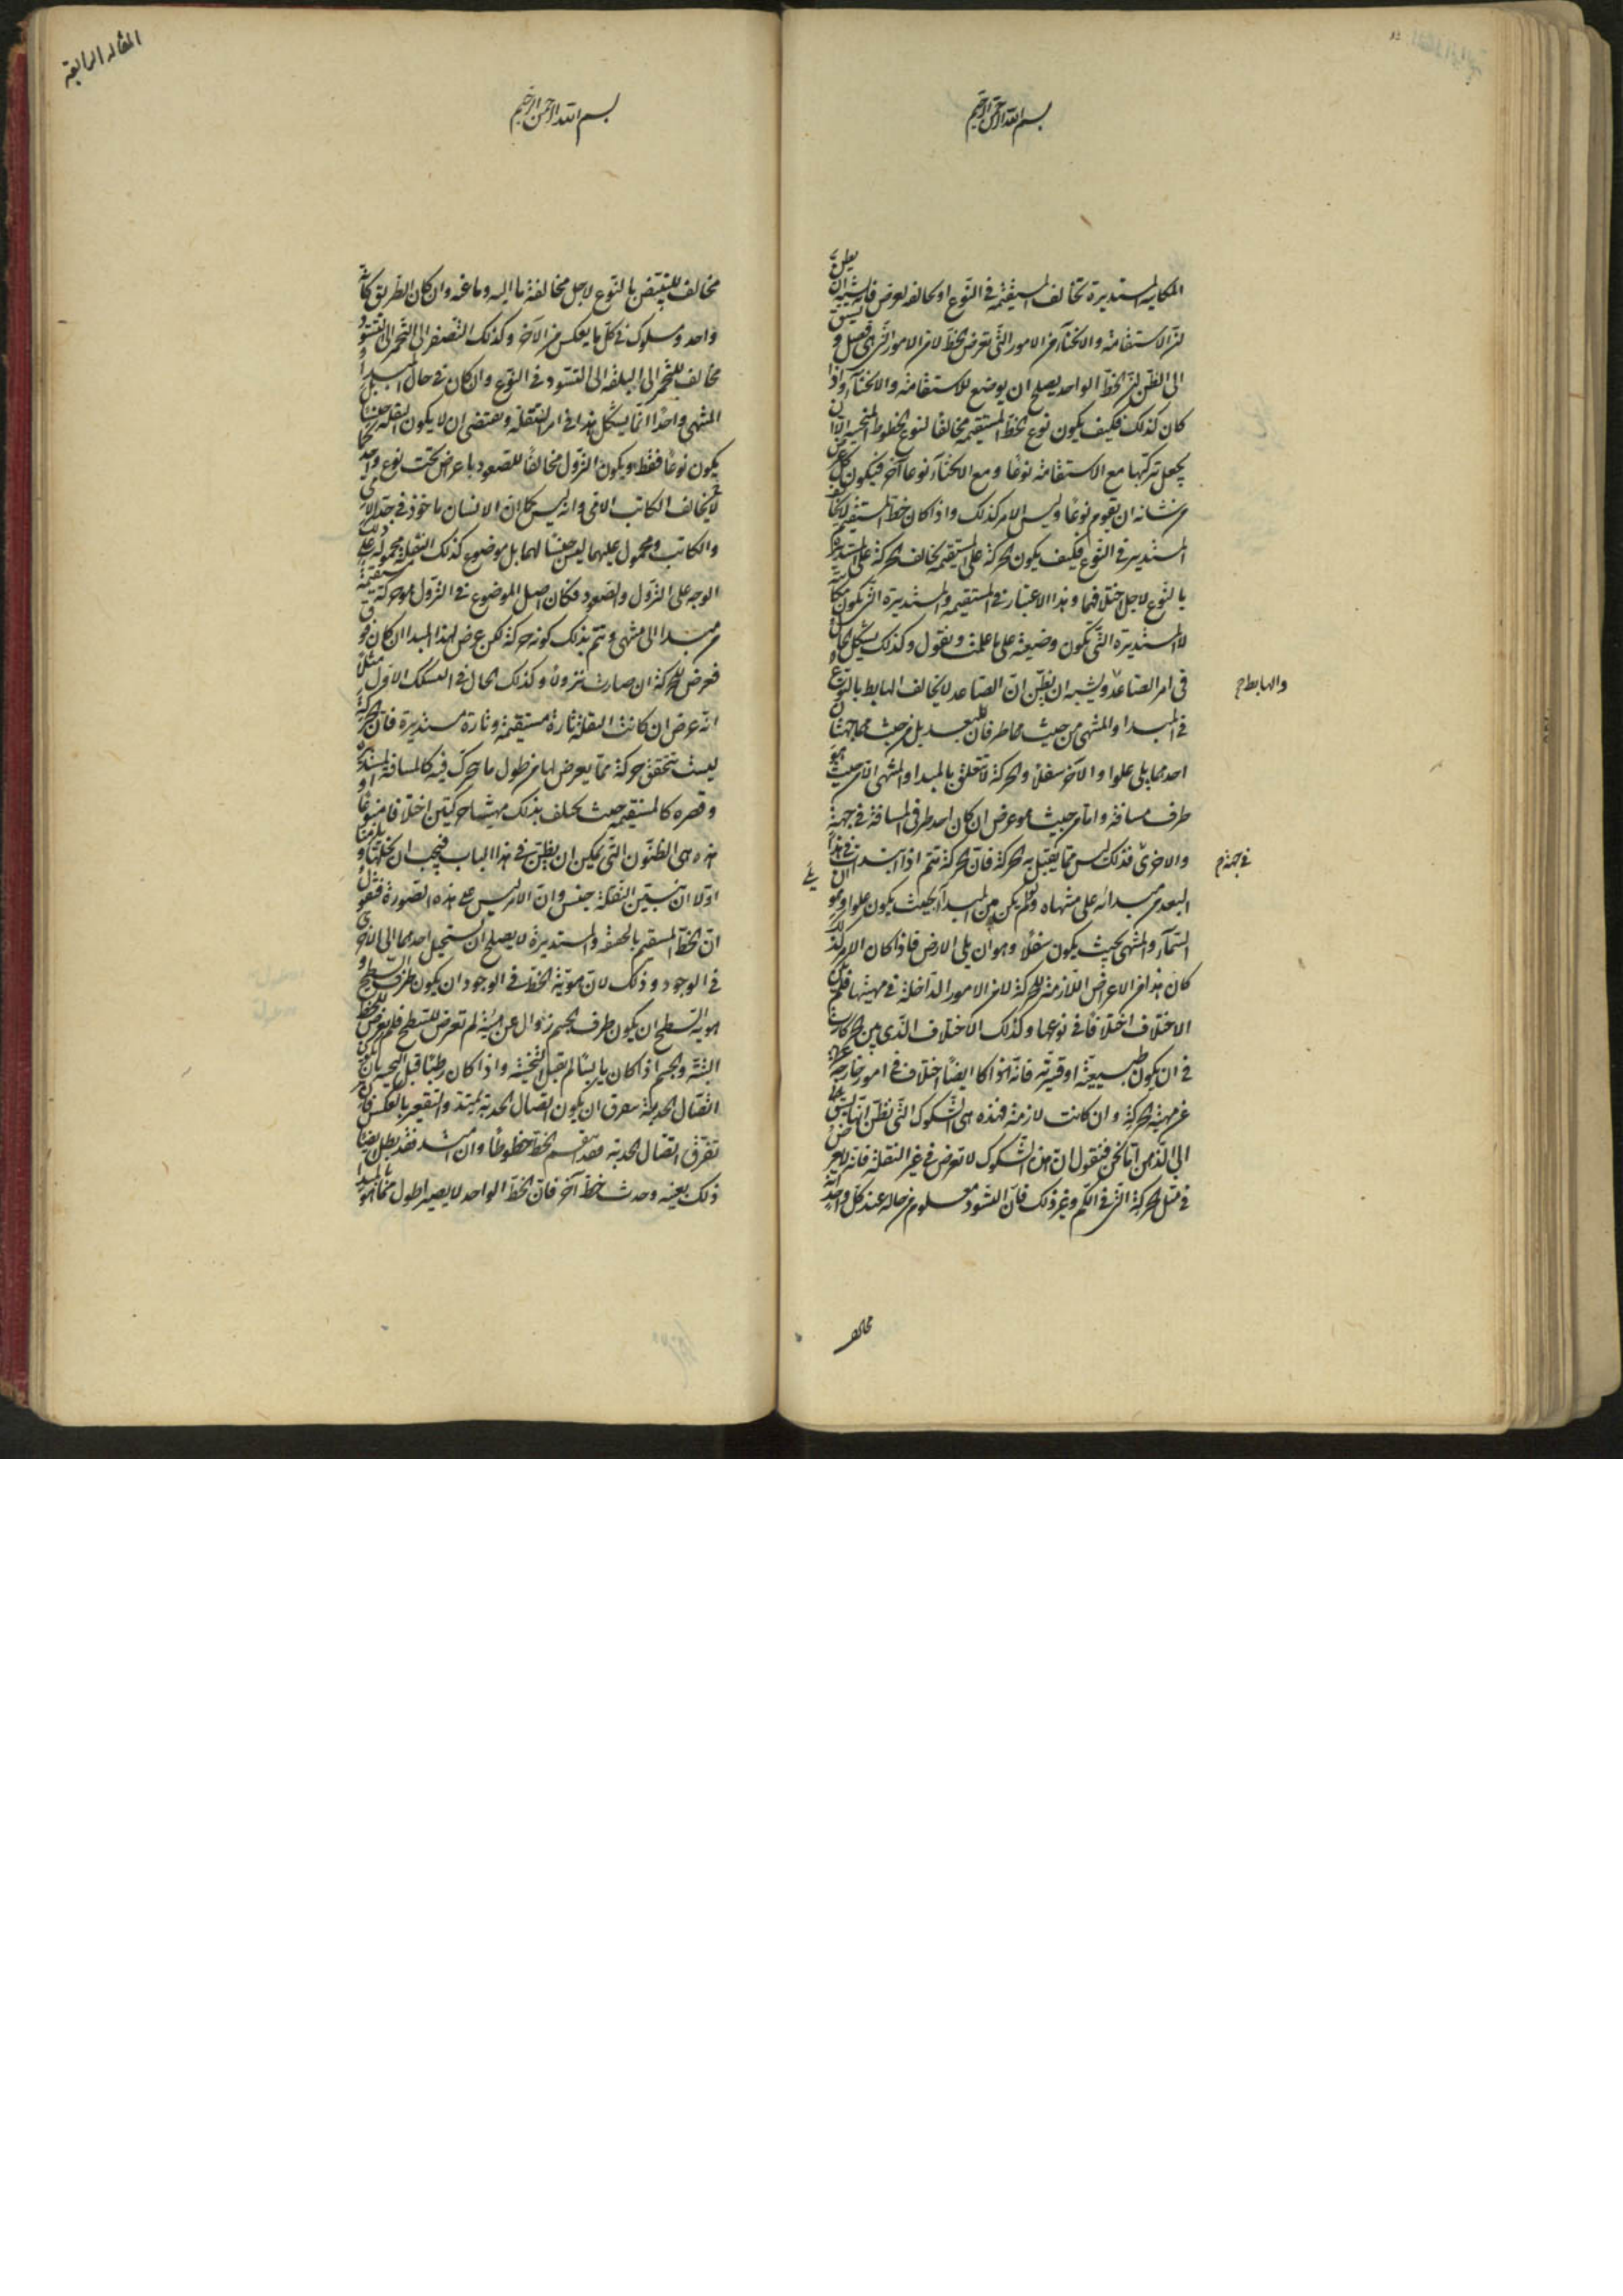 بسم الله الرحمن الرحيم
المكانية المستديرة تخالف المستقيمة في النوع او تخالفه لعوض فانه يشبه ان يظن
ان الاستقامة والانحناء من الامور التي تعرض للخط لا من الامور التي هي فصول و يسبق
الى الظن ان الخط الواحد يصلح ان يوضع للاستقامة والانحناء واذا
كان كذلك فكيف يكون نوع الخط المستقيم مخالفا لنوع الخطوط المنحنية الا ان
يجعل تركبها مع الاستقامة نوعا ومع الانحناء نوعا آخر فيكون كل عرض
من شانه ان يقوم نوعا وليس الامر كذلك واذا كان خط المستقيم لا يخالف
المستدير في النوع فكيف يكون الحركة على المستقيمة يخالف الحركة على المستديرة
بالنوع لاجل اختلافهما وهذا الاعتبار في المستقيمة والمستديرة التي يكون مكانية
لا المستديرة التي يكون وضعية على ما علمت ونقول وكذلك يشكل الحال
في امر الصاعد ويشبه ان يظن ان الصاعد لا يخالف الهابط بالنوع
والهابط
في المبدا والمنتهى من حيث هما طرفان للبعد بل من حيث هما جهتان
احدهما يلي علوا والآخر سفلا والحركة لا تتعلق بالمبدا والمنتهى الا من حيث هو
طرف مسافة واما من حيث هو عرض ان كان احد طرفي المسافة في جهة
والاخرى فذلك ليس مما يقبل به الحركة فان الحركة تتم اذا ابتدات في هذا
في جهة
البعد من مبدائه على منتهاه ولو لم يكن المبدا بحيث يكون علوا وهو ان يلي
السماء والمنتهى بحيث يكون سفلا وهو ان يلي الارض فاذا كان الامر كذلك
كان هذا من الاعراض اللازمة للحركة لا من الامور الداخلة في مهيتها فلم يكن
الاختلاف اختلافا في نوعها وكذلك الاختلاف الذي بين الحركات
في ان يكون طبيعية او قسرية فانه هو اكا ايضا اختلاف في امور خارجة
عن مهية الحركة وان كانت لازمة فهذه هي الشكوك التي يظن انها يسبق
الى الذهن اما نحن فنقول ان هذه الشكوك لا تعرض في غير النقلة فانه لا يعرض
في مثل الحركة التي في الكم وغير ذلك فان التسود معلوم من حاله عند كل واحد انه
مخالف
المقالة الرابعة
بسم الله الرحمن الرحيم
مخالف للتبيض بالنوع لاجل مخالفة ما اليه وما عنه وان كان الطريق كانه
واحد وسلوك في كل ما يعكس من الآخر وكذلك التصفر الى التحمر الى التسود
مخالف للتحمر الى الى التسود في النوع وان كان في حال المبدا و
المنتهى واحدا انما يشكل هذا في امر النقلة ويقتضي ان لا يكون النقلة جنسا بل
يكون نوعا فقط ويكون النزول مخالفا للصعود باعراض تحت نوع واحد كما
لا يخالف الكاتب الامي وانه ليس كما ان الانسان ماخوذ في حد الامي
والكاتب ومحمول عليهما ليس جنسا لهما بل موضوع كذلك النقلة محمولة على ذلك
الوجه على النزول والصعود فكان اصل الموضوع في النزول هو حركة مستقيمة
من مبدا الى منتهى ويتم بذلك كونه حركة لكن عرض لهذا المبدا ان كان فوق
فعرض للحركة ان صارت نزولا وكذلك الحال في الشكل الاول مثلا
انه عرض ان كانت النقلة تارة مستقيمة وتارة مستديرة فان الحركة
ليست يتحقق حركة مما يعرض لها من طول ما تحرك فيه كالمسافة المستديرة او
وقصره كالمستقيمة حيث يختلف بذلك مهيتها حركتين اختلافا منوعا
هذه هي الظنون التي يمكن ان يظن في هذا الباب فيجب ان نحلها و يلزمنا
اولا ان نبين ان النقلة جنس وان الامر ليس على هذه الصورة فنقول
ان الخط المستقيم بالحقيقة والمستديرة لا يصلح ان يستحيل احدهما الى الآخر
في الوجود وذلك لان هوية الخط في الوجود ان يكون طرف السطح و
هوية السطح ان يكون طرف الجسم زوال عن هيئة لم تعرض للسطح فلم يعرض للخط
البتة والجسم اذا كان يابسا لم يقبل التحنية واذا كان رطبا قبل التحنية بان
اتصال الحدبة يتفرق ان يكون اتصال الحدبة يمتد والتقعير بالعكس فان
تفرق اتصال الحدبة فقد انقسم الخط خطوطا وان امتد فقد بطل ايضا
ذلك بعينه وحدث خط آخر فان الخط الواحد لا يصير اطول مما هو